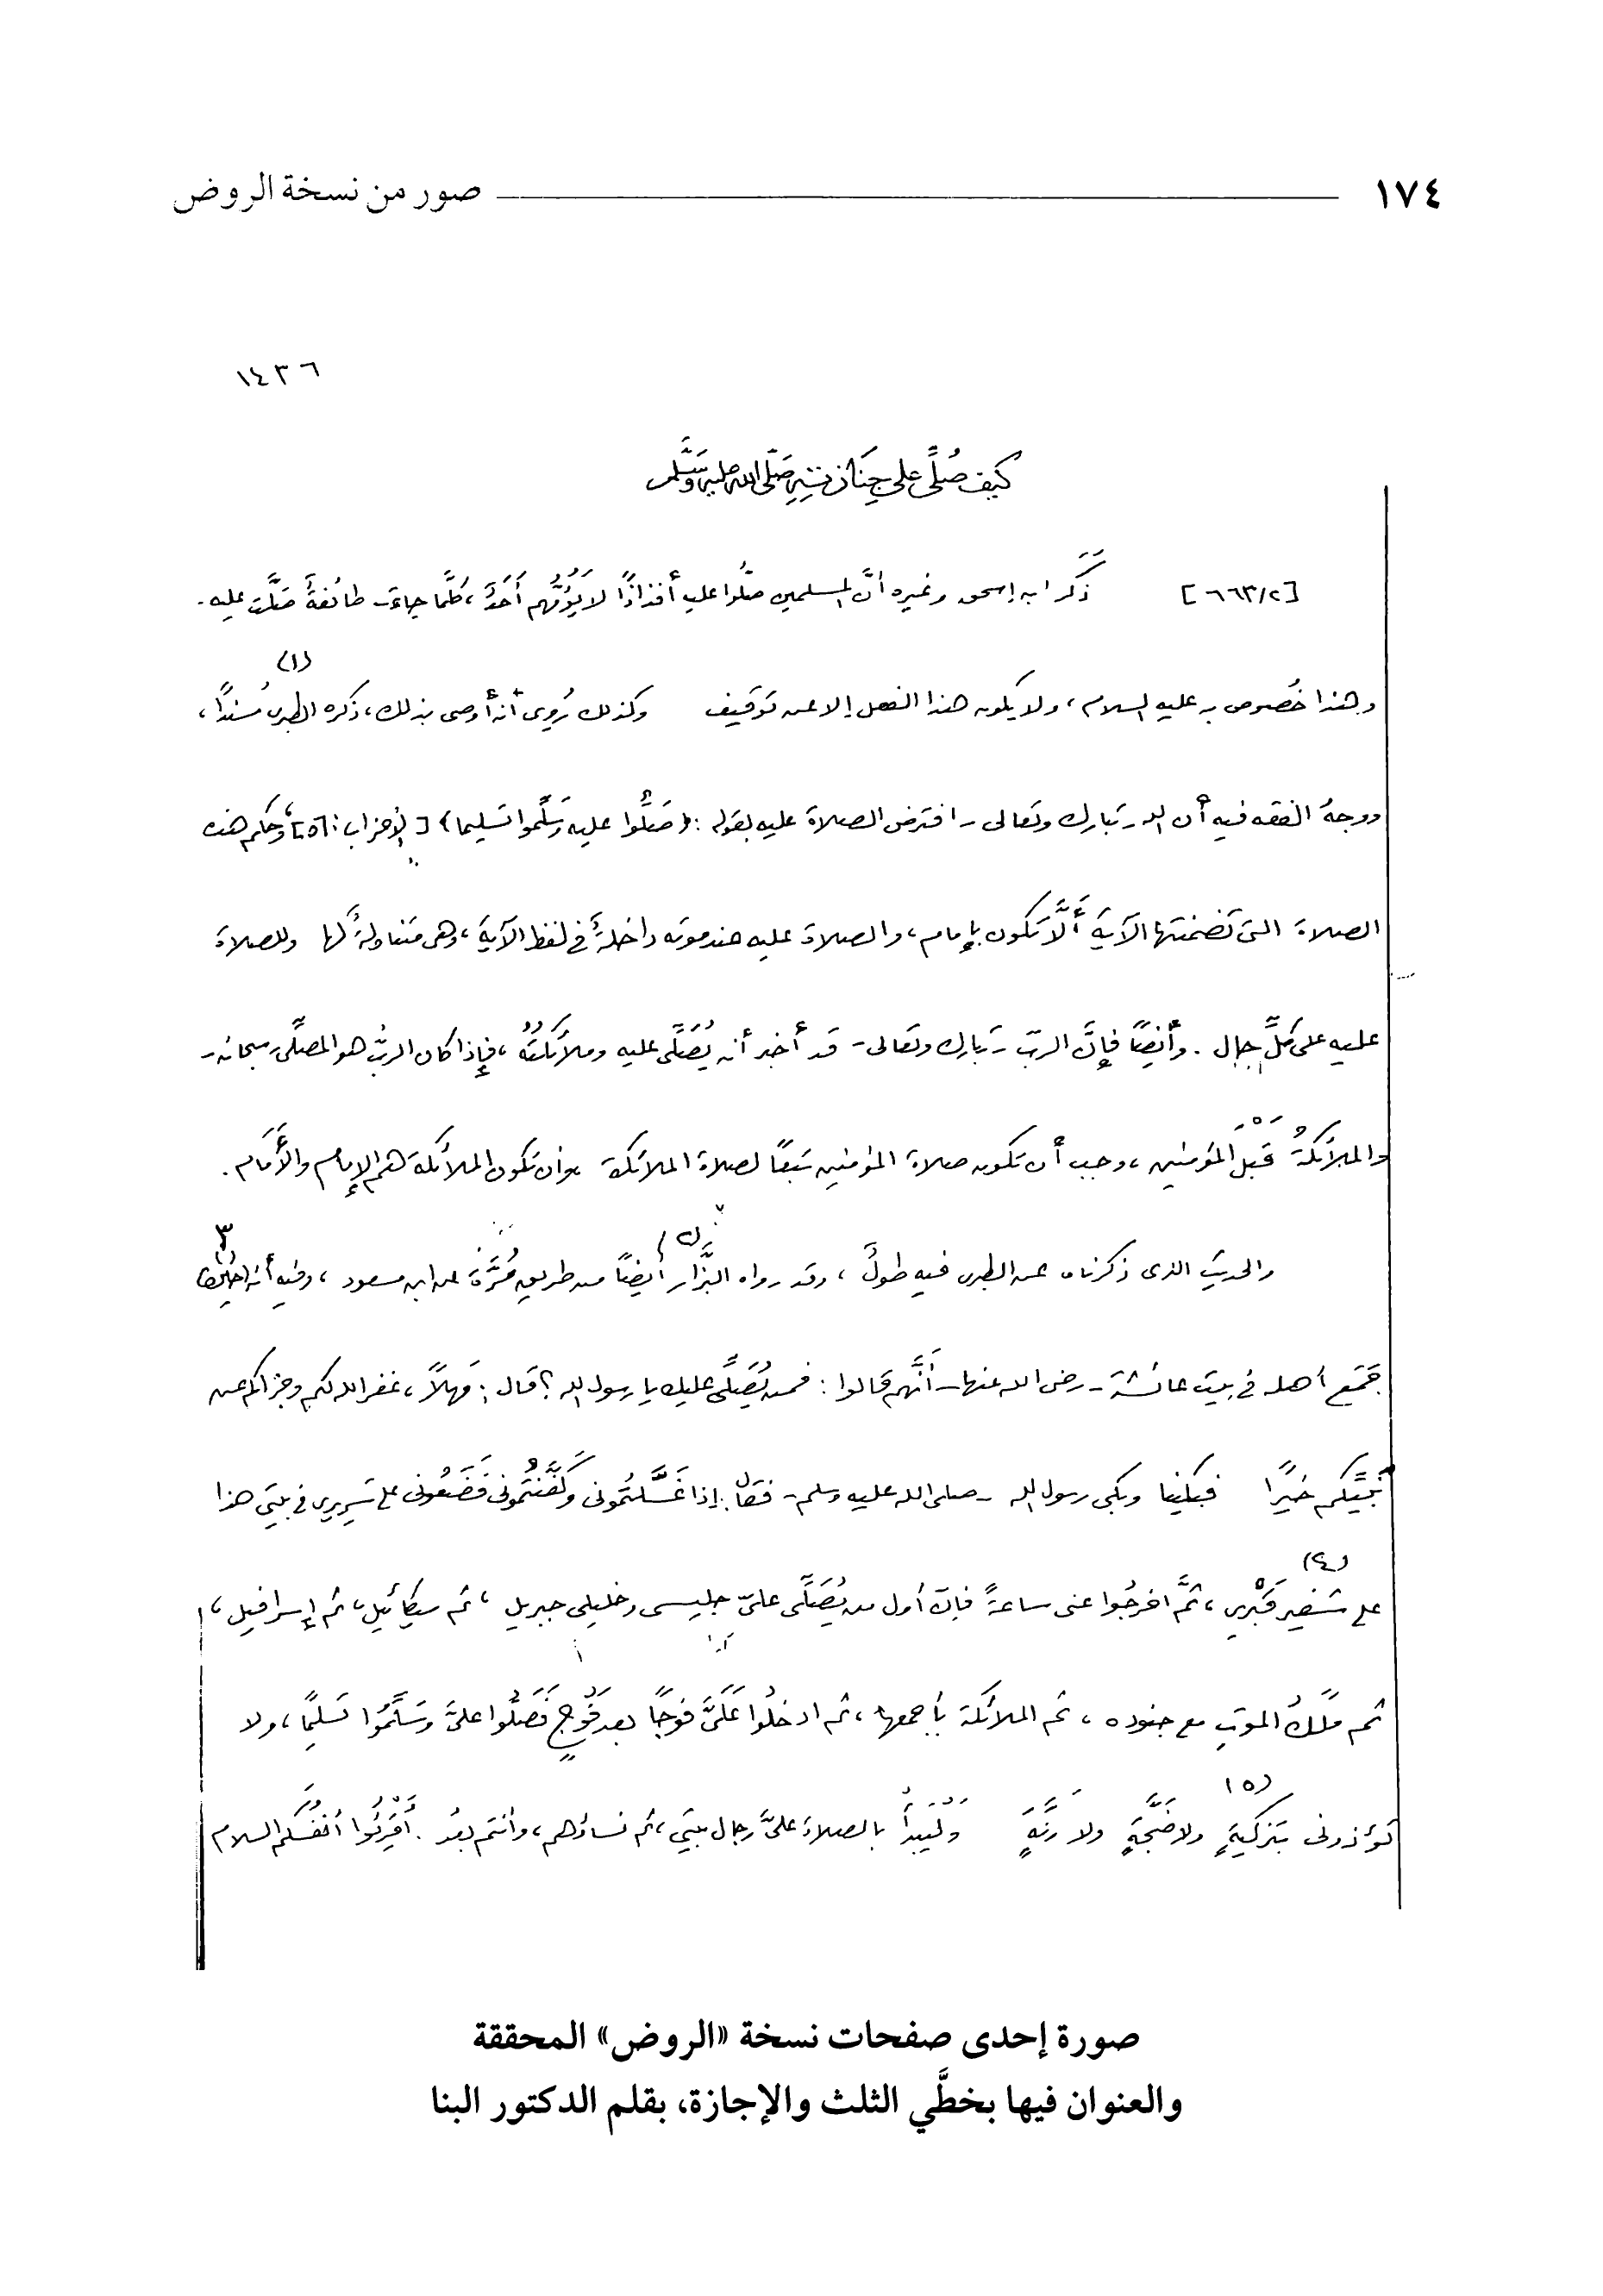 ١٧٤ صور من نسخة الروض
١٤٣٦
كيف صُلِّيَ على جنازته صَلَّى الله عليه وَسَلَّم
[٦٦٣/٢] ذَكَرَ ابن إسحق وغيره أنَّ المسلمين صلُّوا عليه أفذاذًا لا يَؤُمُّهم أَحَدٌ، كلَّما جاءت طائفةٌ صَلَّت عليه.
وهذا خُصوص به عليه السلام، ولا يكون هذا الفعل إلا عن توقيف وكذلك رُوِى أنه أوصى بذلك، ذكره الطبرى مُسْندًا، (١)
ووجهُ الفقه فيه أن الله - تبارك وتعالى - افترض الصلاة عليه بقوله: {صَلُّوا عليه وسَلِّموا تسليما} [الأحزاب: ٥٦]، وحكم هذه
الصلاة التى تضمنتها الآية أَلَّا تكون بإمام، والصلاة عليه عند موته داخلةٌ فى لفظ الآية، وهى متناولةٌ لها وللصلاة
عليه على كلِّ حال. وأيضًا فإنَّ الربّ - تبارك وتعالى - قد أخبر أنه يُصَلِّى عليه وملائكتُه، فإذا كان الربُّ هو المصلِّى - سبحانه -
والملائكةُ قَبْلَ المؤمنين، وجب أن تكون صلاة المؤمنين تبعًا لصلاة الملائكة وأن تكون الملائكة هم الإمام والأَمَام.
والحديث الذى ذكرناه عن الطبرى فيه طولٌ، وقد رواه البزَّار (٢) أيضًا من طريق مُرَّة عن ابن مسعود، وفيه أنه (٣) حين
جَمَع أهله فى بيت عائشة - رضى الله عنها - أنَّهم قالوا: فمن يُصَلِّى عليك يا رسول الله؟ قال: مَهلًا، غفر الله لكم وجزاكم عن
نَبيِّكم خيرًا فبكينا وبكى رسول الله - صلى الله عليه وسلم - فقال: إذا غَسَّلتُمونى وكَفَّنْتُمونى فَضَعُونى على سَريرى فى بيتى هذا
على شفير قَبْرى (٤)، ثمَّ اخرجُوا عنى ساعةً فإن أول من يُصَلِّى علىّ جليسى وخليلى جبريل، ثم ميكائيل، ثم إسرافيل،
ثم مَلَكُ الموت مع جنوده، ثم الملائكة بأجمعها، ثم ادخلُوا عَلَىَّ فوجًا بعد فَوْجٍ فَصَلُّوا علىَّ وسَلِّمُوا تسليمًا، ولا
تؤذونى بتزكيةٍ (٥) ولا ضَجَّةٍ ولا رَنَّةٍ وليَبدأْ بالصلاة علىَّ رجال بيتى، ثم نساؤهم، وأنتم بعدُ. أَقْرِئُوا أنفسكم السلام
صورة إحدى صفحات نسخة «الروض» المحققة
والعنوان فيها بخطَّي الثلث والإجازة، بقلم الدكتور البنا